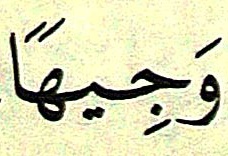 وَجِيهًا